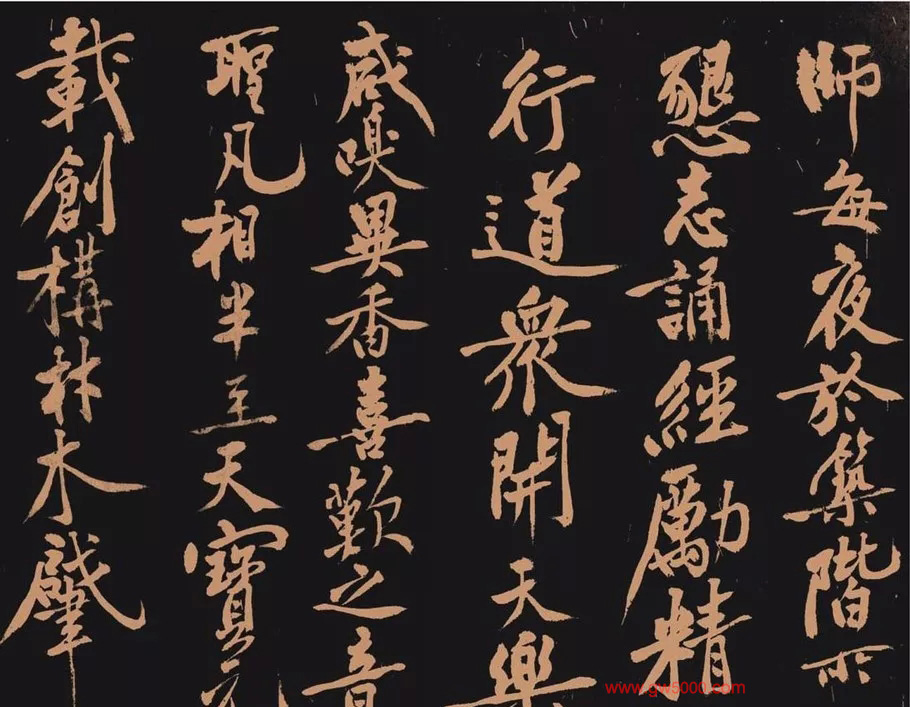 師每夜於築階所
懇志誦經勵精
行道衆開天樂
咸嗅異香喜歡之音
聖凡相半至天寶元
載創構材木肇
www.gw5000.com